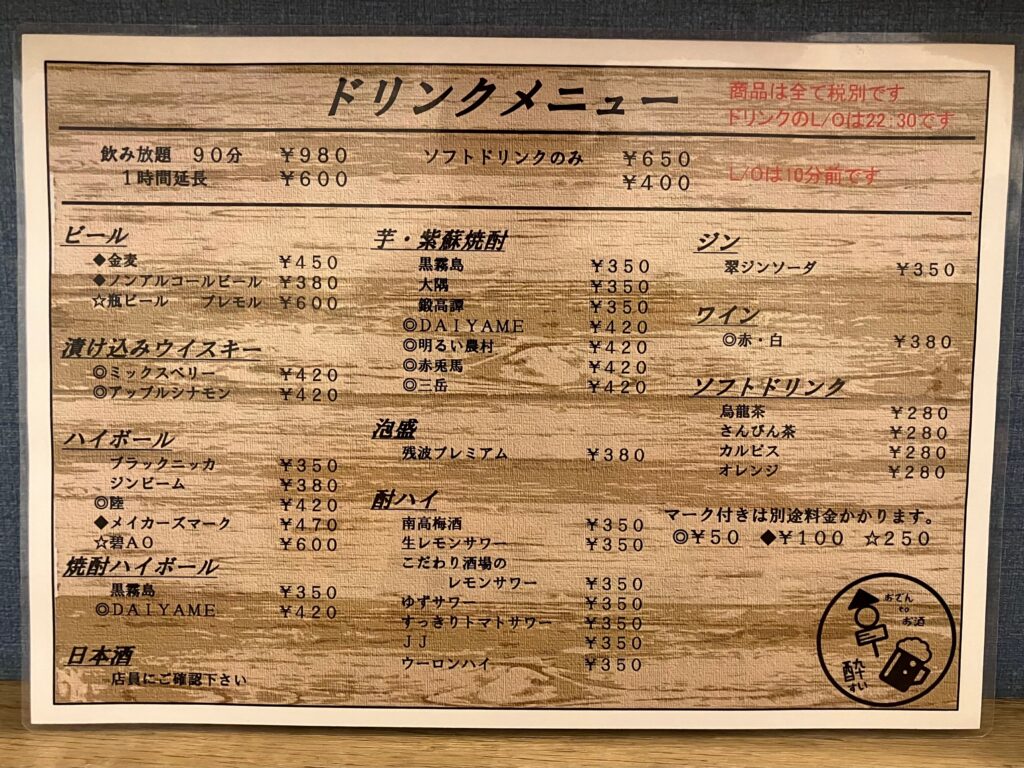 ドリンクメニュー
商品は全て税別です
ドリンクのL/Oは22:30です
飲み放題 90分 ¥980 ソフトドリンクのみ ¥650
1時間延長 ¥600 ¥400
L/Oは10分前です
ビール
◆金麦 ¥450
◆ノンアルコールビール ¥380
☆瓶ビール プレモル ¥600
漬け込みウイスキー
◎ミックスベリー ¥420
◎アップルシナモン ¥420
ハイボール
ブラックニッカ ¥350
ジンビーム ¥380
◎陸 ¥420
◆メイカーズマーク ¥470
☆碧AO ¥600
焼酎ハイボール
黒霧島 ¥350
◎DAIYAME ¥420
日本酒
店員にご確認下さい
芋・紫蘇焼酎
黒霧島 ¥350
大隅 ¥350
鍛高譚 ¥350
◎DAIYAME ¥420
◎明るい農村 ¥420
◎赤兎馬 ¥420
◎三岳 ¥420
泡盛
残波プレミアム ¥380
酎ハイ
南高梅酒 ¥350
生レモンサワー ¥350
こだわり酒場の
レモンサワー ¥350
ゆずサワー ¥350
すっきりトマトサワー ¥350
JJ ¥350
ウーロンハイ ¥350
ジン
翠ジンソーダ ¥350
ワイン
◎赤・白 ¥380
ソフトドリンク
烏龍茶 ¥280
さんぴん茶 ¥280
カルピス ¥280
オレンジ ¥280
マーク付きは別途料金かかります。
◎¥50 ◆¥100 ☆250
おでん
to
お酒
酔
すい